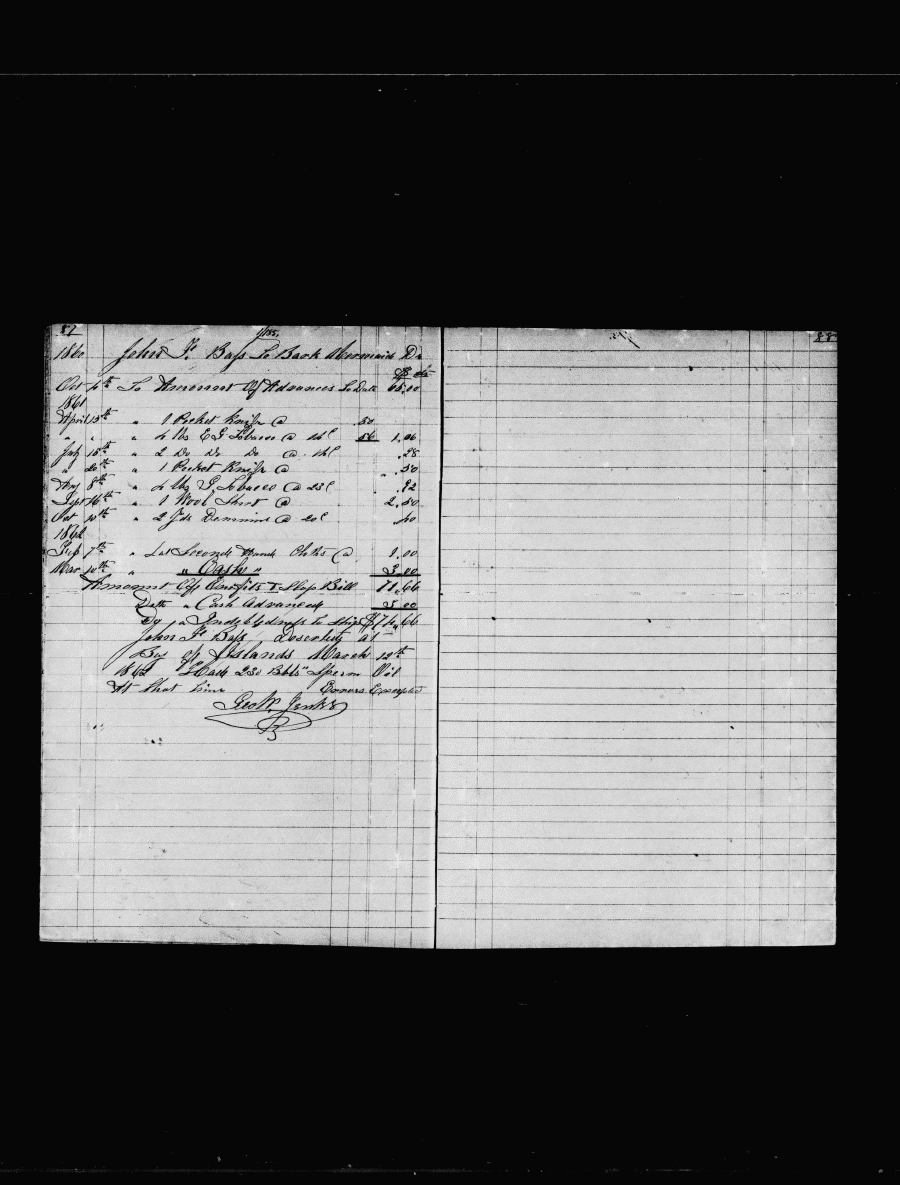 87
1/185.
1860 John F. Bass To Bark Mermaid Dr
$ cts
Oct 4th To Amount Of Advances To Date 65.00
1861
April 15th " 1 Pocket Knife @ .50
" " " 4 lbs E G Tobacco @ 14c 56 1.06
July 15th " 2 Do Do Do @ 14c .28
" 20th " 1 Pocket Knife @ .50
Aug 8th " 4 lbs G Tobacco @ 23c .92
Sept 16th " 1 Wool Shirt @ 2.50
Oct 10th " 2 Yds Demmins @ 20c .40
1862
Feb 7th " Lot Seconds Hand Cloths @ 1.00
Mar 10th " " Cash " 3.00
Amount Off Outfits & Slop Bill 71.66
Ditto " Cash Advanced 3.00
By " Indebtedness to Ship $74.66
John F. Bass Deserted at
Bay of Islands March 12th
1862 Had 230 Bbls Sperm Oil
At that time Errors Excepted
Geo W. Jenks
88